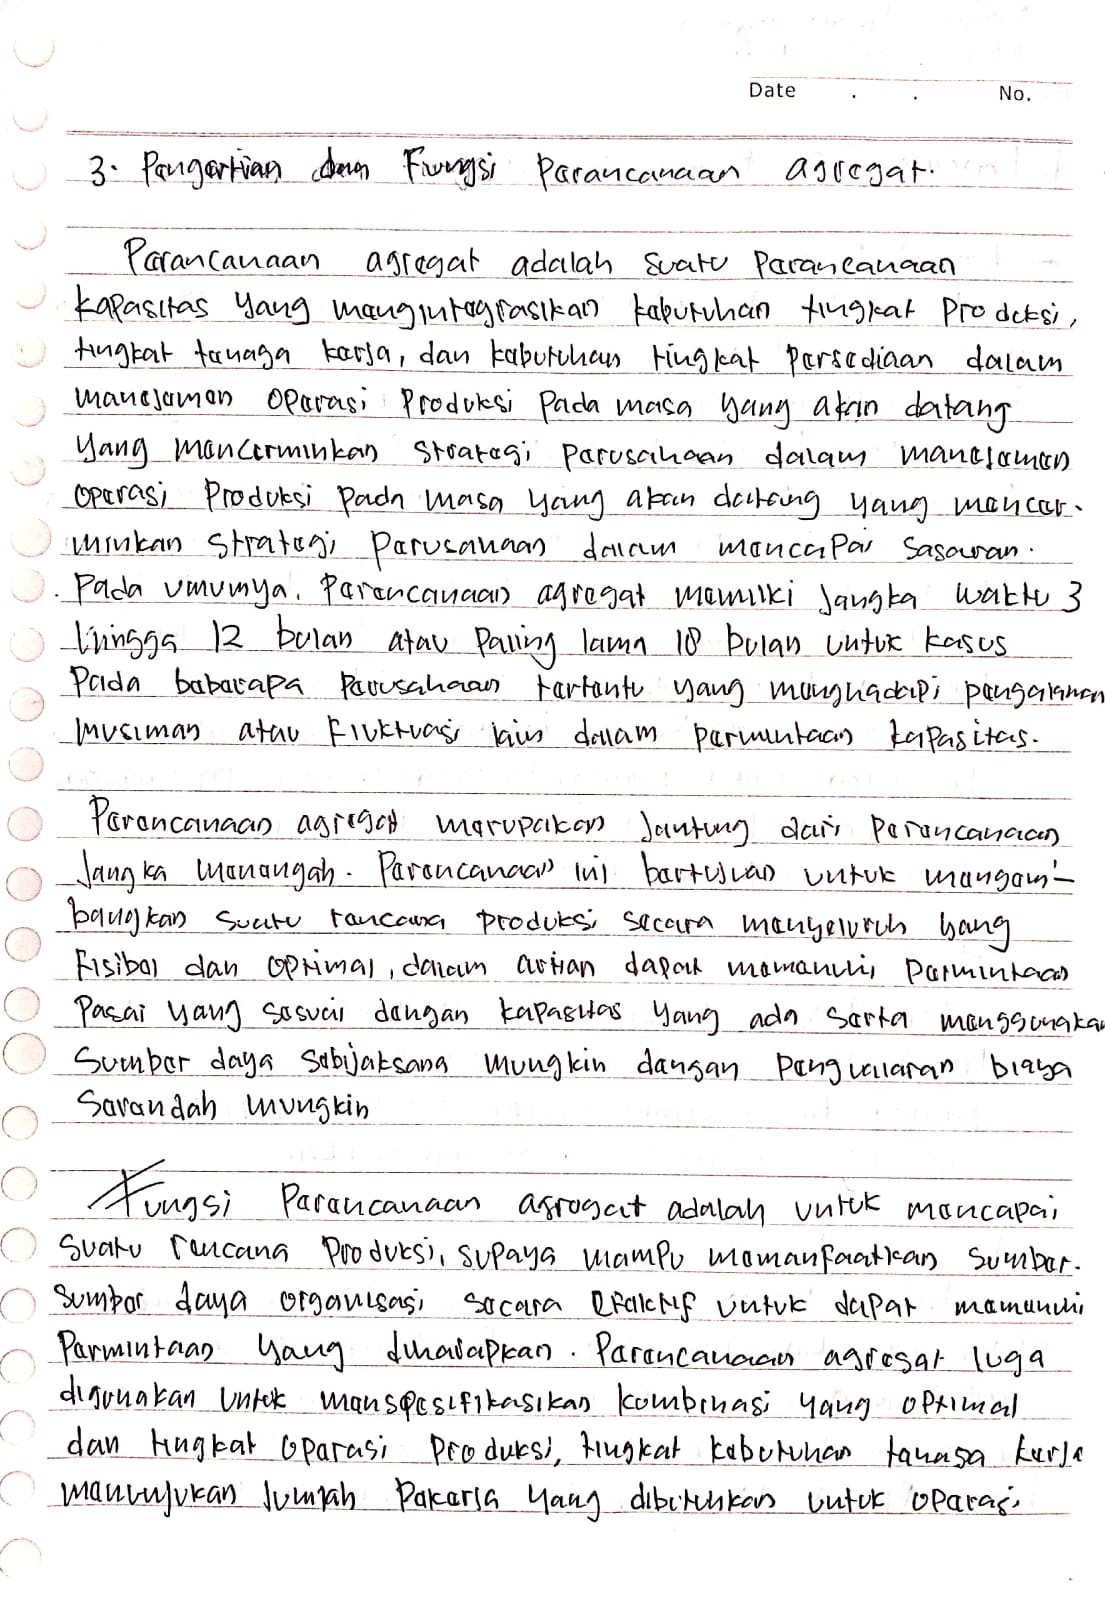 Date . . No.
3. Pengertian dan Fungsi Perencanaan agregat.
Perencanaan agregat adalah suatu Perencanaan
kapasitas yang mengintegrasikan kebutuhan tingkat Produksi,
tingkat tenaga kerja, dan kebutuhan tingkat Persediaan dalam
manejemen Operasi Produksi Pada masa yang akan datang
yang mencerminkan strategi Perusahaan dalam manejemen
Operasi Produksi Pada masa yang akan datang yang mencer-
minkan strategi Perusahaan dalam mencapai sasaran.
Pada umumya, Perencanaan agregat memilki Jangka waktu 3
hingga 12 bulan atau Paling lama 18 bulan untuk kasus
Pada beberapa Perusahaan tertentu yang menghadapi pengalaman
musiman atau Fluktuasi lain dalam permintaan kapasitas.
Perencanaan agregat merupakan Jantung dari Perencanaan
Jangka menengah. Perencanaan ini bertujuan untuk mengem-
bangkan suatu rencana Produksi secara menyeluruh yang
Fisibel dan OPtimal, dalam artian dapat memenuhi Permintaan
Pasar yang sesuai dengan kapasitas yang ada serta menggunakan
Sumber daya sebijaksana mungkin dengan Pengualaran biaya
Serendah mungkin
Fungsi Perencanaan agregat adalah untuk mencapai
Suatu rencana Produksi, supaya mampu memanfaatkan sumber-
sumber daya organisasi secara efektif untuk dapat memenuhi
Permintaan yang diharapkan. Perencanaan agregat juga
digunakan untuk menspesifikasikan kombinasi yang optimal
dan tingkat Operasi Produksi, tingkat kebutuhan tenaga kerja
menunjukan Jumlah Pekerja yang dibutuhkan untuk operasi